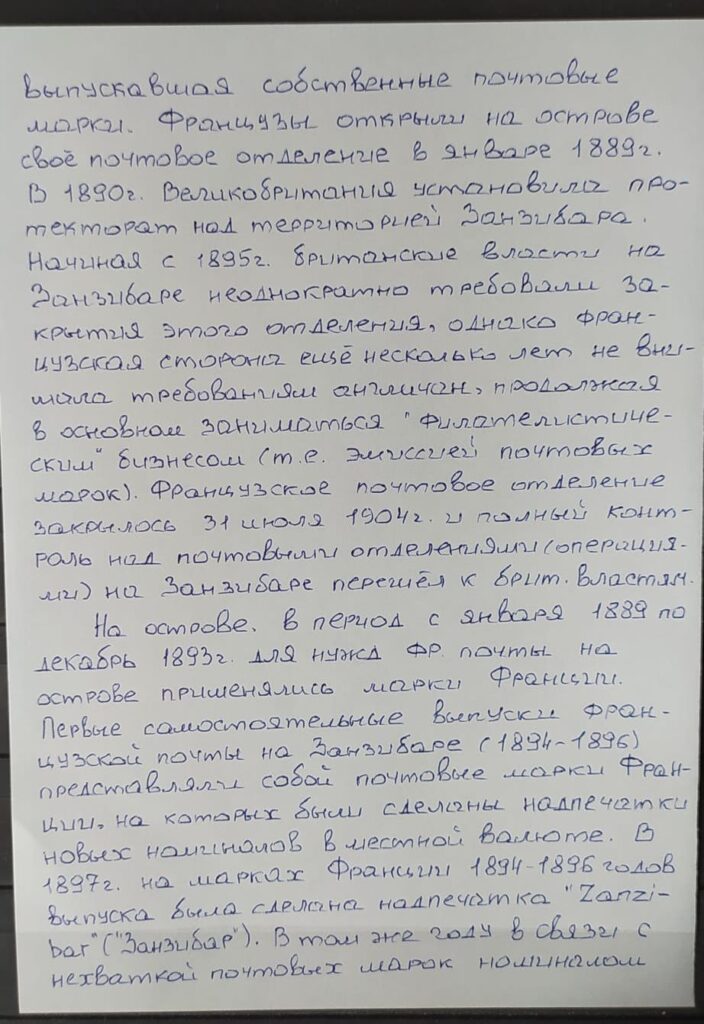 выпускавшая собственные почтовые
марки. Французы открыли на острове
своё почтовое отделение в январе 1889г.
В 1890г. Великобритания установила про-
текторат над территорией Занзибара.
Начиная с 1895г. британские власти на
Занзибаре неоднократно требовали за-
крытия этого отделения, однако фран-
цузская сторона ещё несколько лет не вни-
мала требованиям англичан, продолжая
в основном заниматься "филателистиче-
ским" бизнесом (т.е. эмиссией почтовых
марок). Французское почтовое отделение
закрылось 31 июля 1904г. и полный конт-
роль над почтовыми отделениями (операция-
ми) на Занзибаре перешёл к брит. властям.
На острове. В период с января 1889 по
декабрь 1893г. для нужд фр. почты на
острове применялись марки Франции.
Первые самостоятельные выпуски фран-
цузской почты на Занзибаре (1894-1896)
представляли собой почтовые марки Фран-
ции, на которых были сделаны надпечатки
новых номиналов в местной валюте. В
1897г. на марках Франции 1894-1896 годов
выпуска была сделана надпечатка "Zanzi-
bar" ("Занзибар"). В том же году в связи с
нехваткой почтовых марок номиналом